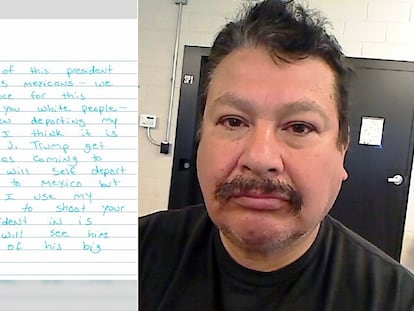 of this president
s mexicans - we
ce for this
you white people -
n deporting my
I think it is
J. Trump get
es coming to
will self deport
to Mexico but
I use my
to shoot your
ident in is
will see him
of his big
SP1